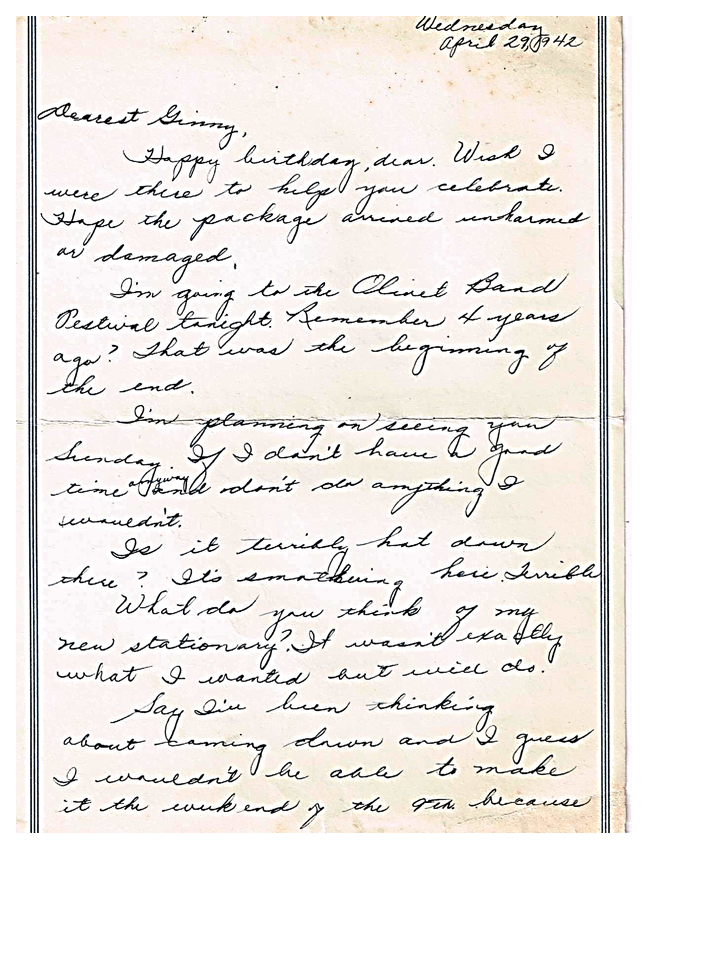 Wednesday
April 29, 1942
Dearest Ginny,
Happy birthday, dear. Wish I
were there to help you celebrate.
Hope the package arrived unharmed
or damaged.
I'm going to the Olivet Band
Festival tonight. Remember 4 years
ago? That was the beginning of
the end.
I'm planning on seeing you
Sunday. If I don't have a good
time anyway and don't do anything I
wouldn't.
Is it terribly hot down
there? It's smothering here. Terrible
What do you think of my
new stationary? It wasn't exactly
what I wanted but will do.
Say I've been thinking
about coming down and I guess
I wouldn't be able to make
it the weekend of the 9th because